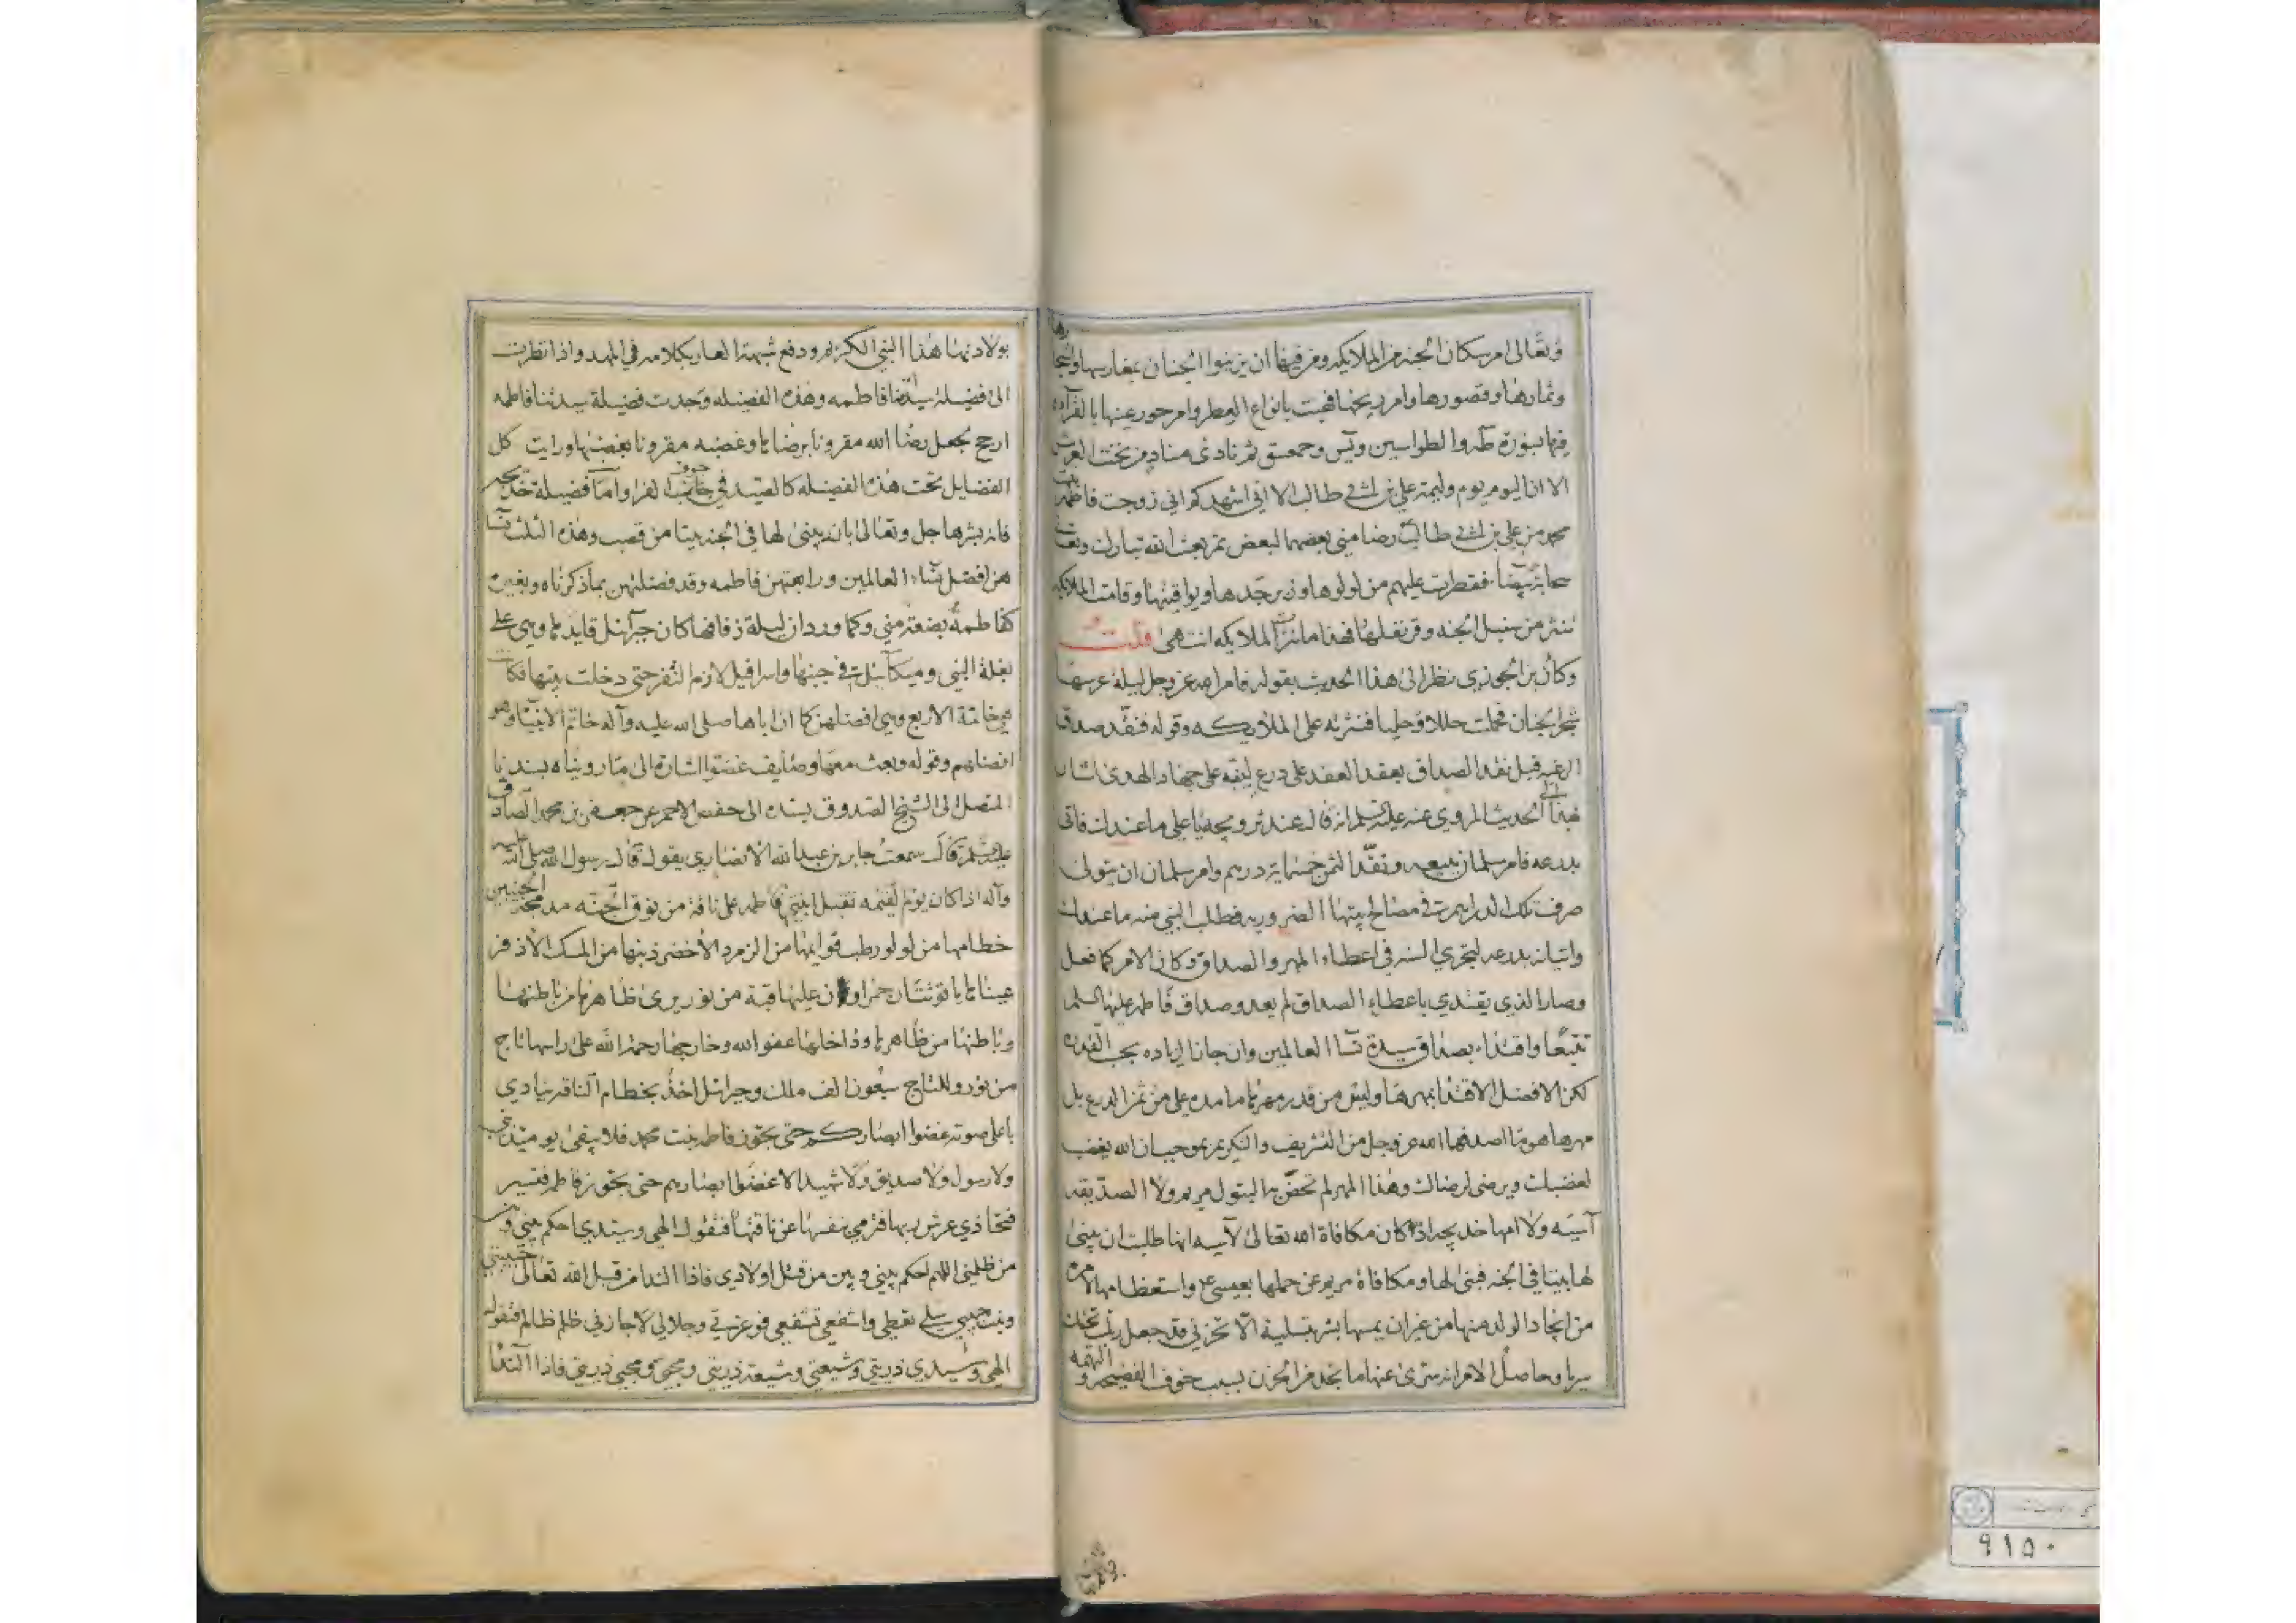 وتعالى امر سكان الجنة من الملايكه ومن فيها ان يزينوا الجنان بمغارسها واشجارها
وثمارها وقصورها وامر ريحها فهبت بانواع العطر وامر حور عينها بالقرآءه
فيها بسورة طه والطواسين ويس وحمعسق ثم نادى مناد من تحت العرش
الا ان اليوم يوم وليمة علي بن ابي طالب الا اني اشهدكم اني زوجت فاطمة بنت
محمد من علي بن ابي طالب رضا مني بعضهما لبعض ثم بعث الله تبارك وتعالى
سحابة بيضا فقطرت عليهم من لولوها وزبرجدها ويواقيتها وقامت الملايكه
فنثرت من سنبل الجنه وقرنفلها فهذا ما نثرت الملايكه انتهى قلت
وكان بن الجوزي نظر الى هذا الحديث بقوله فامر الله عز وجل ليلة عرسها
شجر الجنان فحملت حللا وحليا فنثرته على الملايكه وقوله فنقد صداق
قبل نقد الصداق بعقد العقد على درع اشارة
الى الحديث المروي عنه عليه السلام انه قال عندي ما عندك فاتى
بدرعه فامر سلمان ببيعه ونقد الثمن خمسماية درهم وامر سلمان ان يتولى
صرف تلك الدراهم في مصالح بيتها الضروريه فطلب النبي منه ما عندك
واتيانه بدرعه لتجري السنه في اعطاء المهر والصداق وكان الامر كما فعل
وصار الذي يقتدي باعطاء الصداق لم يعد وصداق فاطمة عليها السلم
تتبعا واقتداء بصداق سيدة نسآ العالمين وان جاز الزياده بحب القدره
لكن الافضل الاقتدا بمهرها وليس من قدر مهرها ما مده علي من ثمن الدرع بل
مهرها هو ما اصدقها الله عز وجل من التشريف والتكريم بموجب ان الله يغضب
لغضبك ويرضى لرضاك وهذا المهر لم تحض به البتول مريم ولا الصديقه
آسيه ولا امها خديجه اذ كان مكافاة الله تعالى لآسيه انها طلبت ان يبنى
لها بيتا في الجنه فبنى لها ومكافاة مريم عن حملها بعيسى ع واستعظامها الامر
من ايجاد الولد منها من غير ان يمسها بشر بتسلية الا تحزني قد جعل ربك تحتك
سريا وحاصل الامر انه سرى عنها ما تجد من الحزن بسبب خوف الفضيحه والتهمه
بولادتها هذا النبي الكريم ودفع شبهة العار بكلامه في المهد واذا نظرت
الى فضيلة سيدتنا فاطمه وهذه الفضيله وجدت فضيلة سيدتنا فاطمه
ارجح بجعل رضا الله مقرونا برضاها وغضبه مقرونا بغضبها ورايت كل
الفضايل تحت هذه الفضيله كالصيد في جوف الفرا واما فضيلة خديجه
فانه بشرها جل وتعالى بانه يبنى لها في الجنه بيتا من قصب وهذه الثلث نسآ
هن افضل نساء العالمين ورابعتهن فاطمه وقد فضلتهن بما ذكرناه وبغيره
كفاطمة بضعة مني وكما ورد ان ليلة زفافها كان جبرآئل قايدها وهي على
بغلة النبي وميكآئيل في جنبها واسرافيل لازم الثفر حتى دخلت بيتها فكانت
هي خاتمة الاربع وهي افضلهن كما ان اباها صلى الله عليه وآله خاتم الانبيآ وهو
افضلهم وقوله وبعث معها وصايف غضوا اشارة الى ما رويناه بسندنا
المتصل الى الشيخ الصدوق بسنده الى حفص الاحمر عن جعفر بن محمد الصادق
عليهم السلم قال سمعت جابر بن عبدالله الانصاري يقول قال رسول الله صلى الله عليه
وآله اذا كان يوم القيمه تقبل ابنتي فاطمه على ناقة من نوق الجنه مدبجة الجنبين
خطامها من لولو رطب قوايمها من الزمرد الاخضر ذنبها من المسك الاذفر
عيناها ياقوتتان حمراوان عليها قبة من نور يرى ظاهرها من باطنها
وباطنها من ظاهرها وداخلها عفو الله وخارجها رحمة الله على راسها تاج
من نور وللتاج سبعون الف ملك وجبرائل اخذ بخطام الناقه ينادي
باعلى صوته غضوا ابصاركم حتى تجوز فاطمه بنت محمد فلا يبقى يوميذ نبي
ولا رسول ولا صديق ولا شهيد الا غضوا ابصارهم حتى تجوز فاطمة فتسير
فتحاذي عرش ربها فترمي بنفسها عن ناقتها فتقول الهي وسيدي احكم بيني وبين
من ظلمني اللهم احكم بيني وبين من قتل اولادي فاذا الندا من قبل الله تعالى حبيبتي
وبنت حبيبي سلي تعطي واشفعي تشفعي فوعزتي وجلالي لا جازني ظلم ظالم فتقول
الهي وسيدي ذريتي وشيعتي وشيعة ذريتي ومحبي ومحبي ذريتي فاذا الندا
٩١٥٠